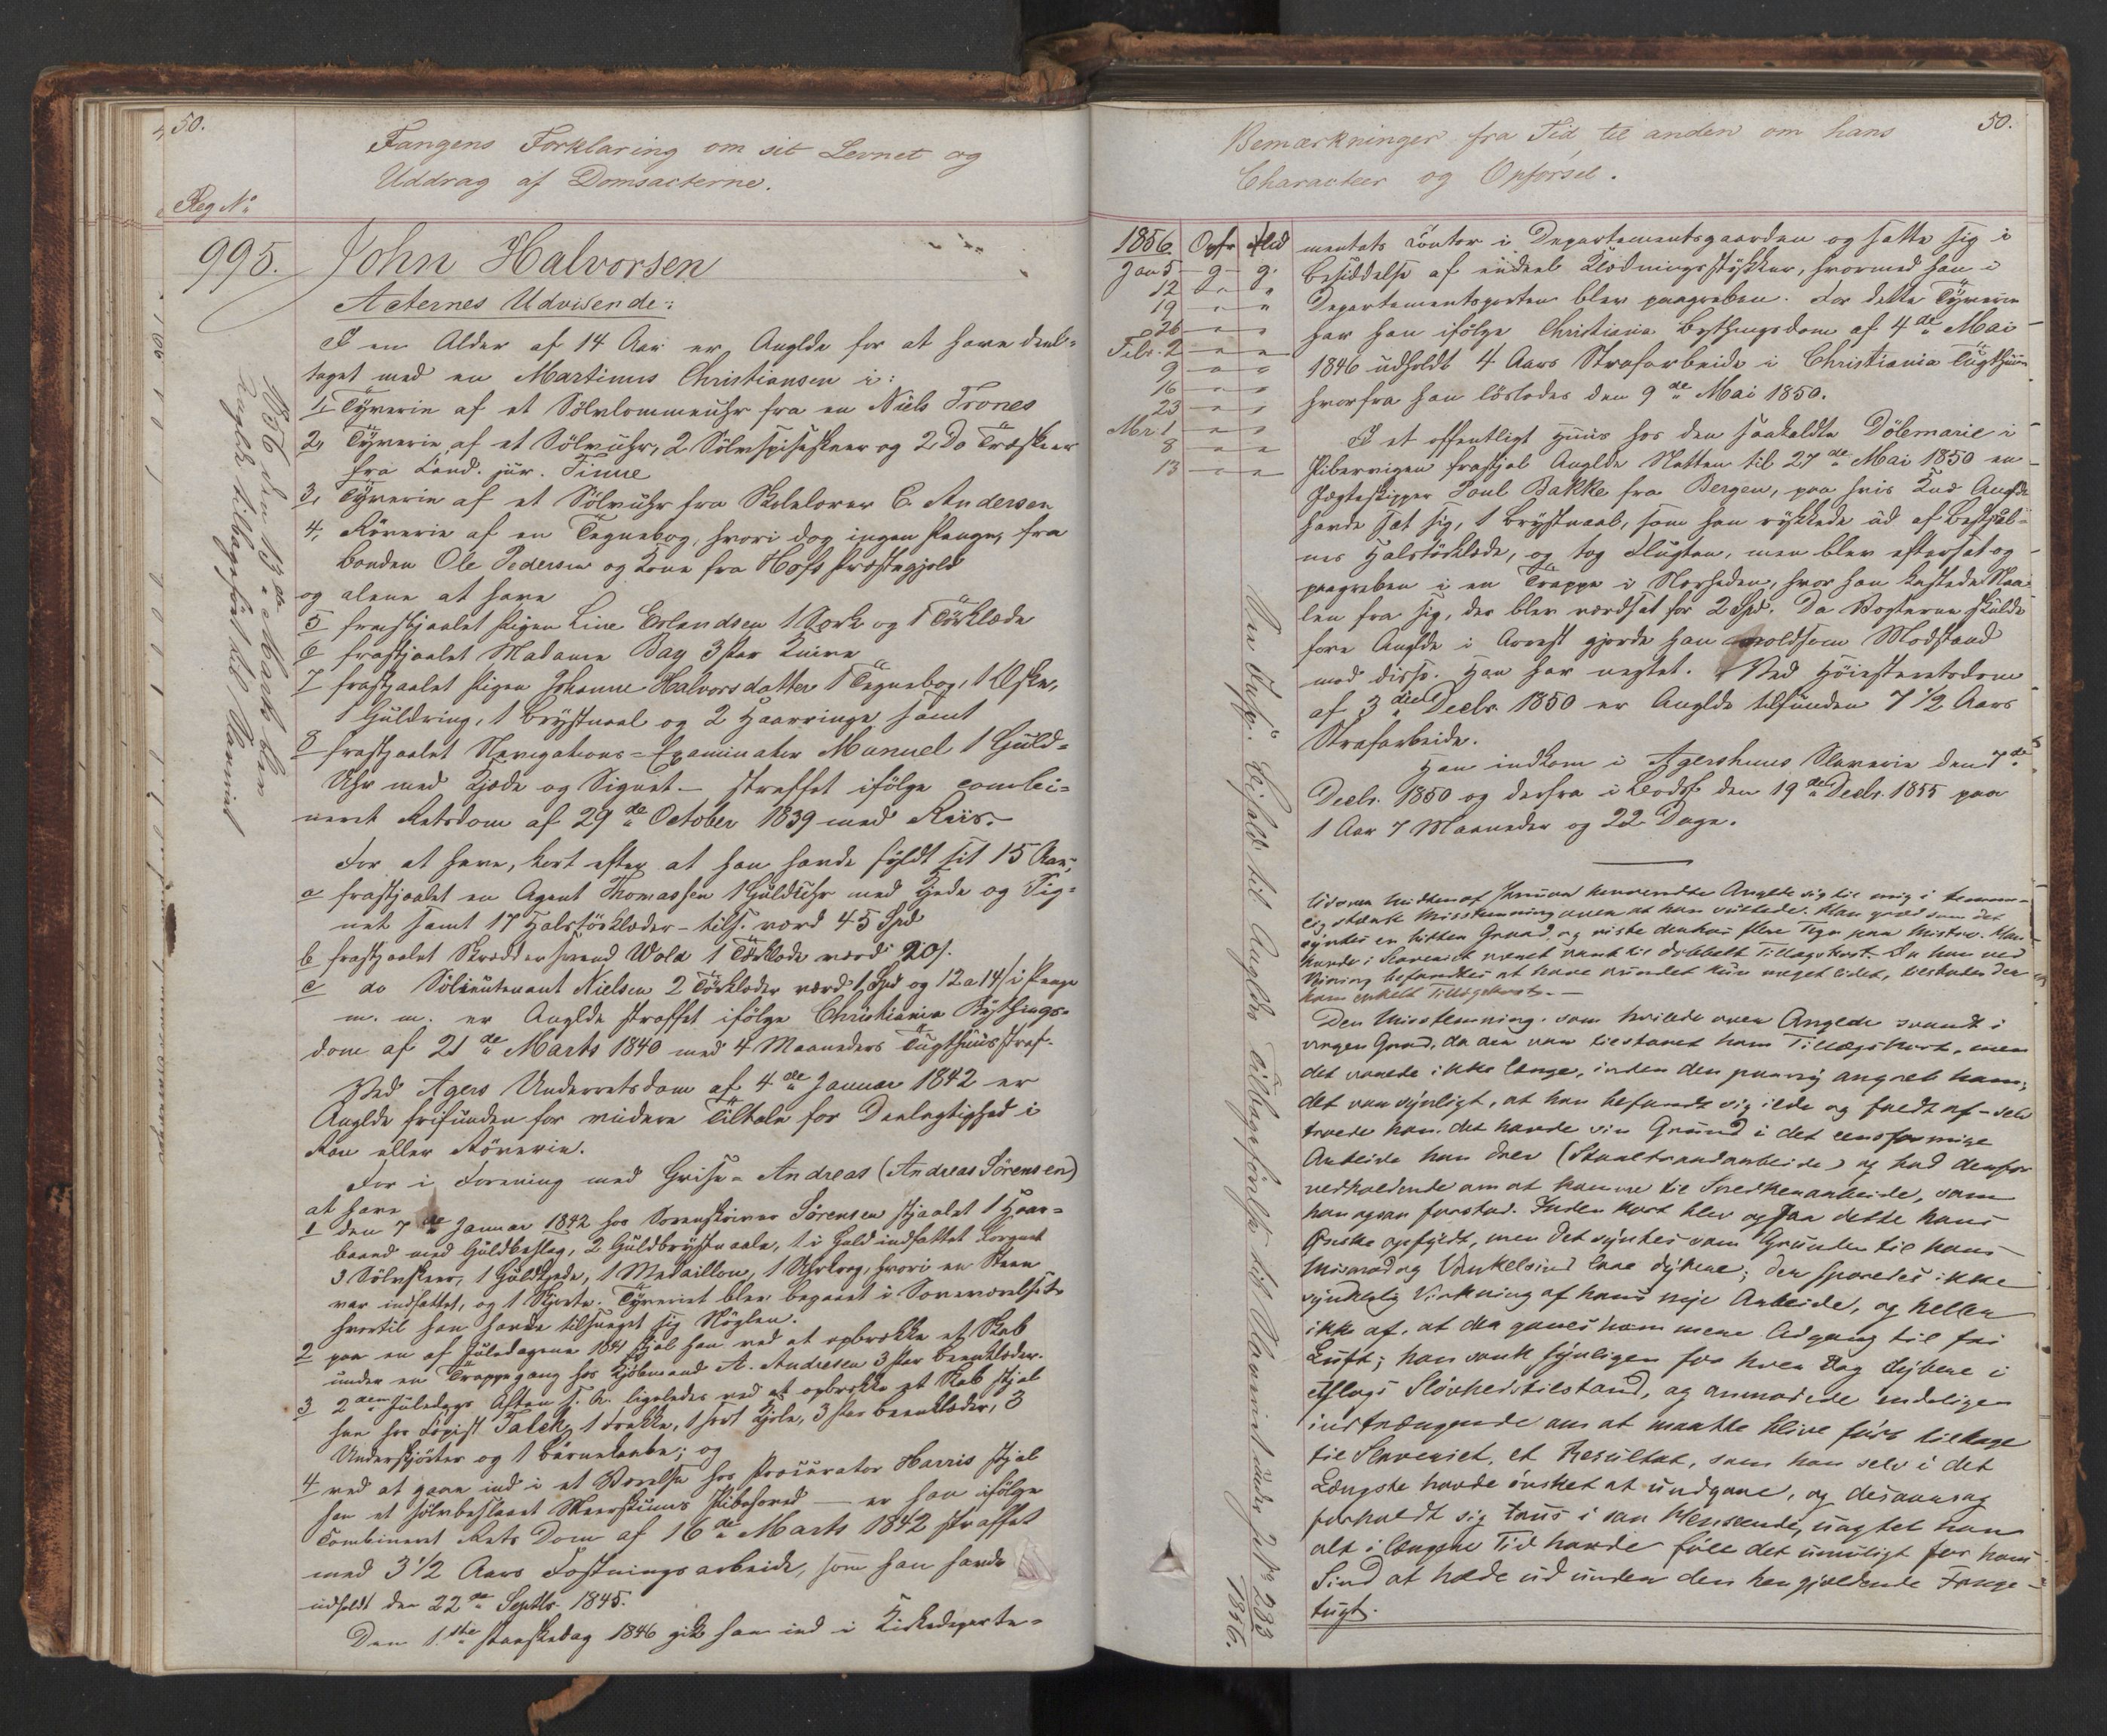 50.
Fangens Forklaring om sit Levnet og
Uddrag af Domsacterne.
Reg No
995. John Halvorsen
Acternes Udvisende:
I en Alder af 14 Aar er Anglde for at have deel-
taget med en Martinus Christiansen i:
1, Tÿverie af et Sölvlommeuhr fra en Niels Trones
2, Tÿverie af et Sölvuhr, 2 Sölvspiseskeer og 2 Do Træskeer
fra Cand. jur. Finne
3, Tÿverie af et Sölvuhr fra Skolelærer C. Andersen
4, Röverie af en Tegnebog, hvori dog ingen Penge, fra
Bonden Ole Pedersen og Kone fra Hofs Præstegjeld
og alene at have
5 frastjaalet Pigen Line Erlandsen 1 Særk og 1 Törklæde
6 frastjaalet Madame Bay 3 Par Knive
7 frastjaalet Pigen Johanne Halvorsdatter 1 Tegnebog, 1 Æske,
1 Guldring, 1 Brÿstnaal og 2 Haarringe samt
8 frastjaalet Navigations-Examinator Manuel 1 Guld-
Uhr med Kjæde og Signet – straffet ifölge combi-
neret Retsdom af 29de October 1839 med Riis.
For at have, kort efter at han havde fÿldt sit 15 Aar,
a frastjaalet en Agent Thomassen 1 Guldühr med Kjede og Sig-
net samt 17 Halstörklæder – tils. værd 45 Spd
b frastjaalet Skræddersvend Wold 1 Törklæde værd 20 s.
c do Sölieutenant Nielsen 2 Törklæder værd 1 Spd og 12 a 14 s i Penge
m. m. er Anglde straffet ifölge Christiania Bÿthings-
dom af 21de Marts 1840 med 4 Maaneders Tugthuusstraf.
Ved Agers Underretsdom af 4de Januar 1842 er
Anglde frifunden for videre Tiltale for Deelagtighed i
Ran eller Röverie.
For i Forening med Grise-Andreas (Andreas Sörensen)
at have
1 den 7de Januar 1842 hos Sorenskriver Sörensen stjaalet 1 Haar-
baand med Guldbeslag, 2 Guldbrÿstnaale, 1 i Guld indfattet Lorgnet
3 Sölvskeer, 1 Guldkjede, 1 Medaillon, 1 hvori en Steen
var indfattet, og 1 Skjorte. Tÿveriet blev begaaet i Soveværelset
hvortil han havde tilsneget sig Nöglen.
2 paa en af Juledagene 1841 stjal han ved at opbrække et Skab
under en Trappegang hos Kjöbmand A. Andresen 3 Par Beenklæder.
3 2den Juledags Aften s. A. ligeledes ved at opbrække et Skab stjal
han hos Copist Falck 1 Frakke, 1 sort Kjole, 3 Par Beenklæder, 3
Underskjörter og 1 Barnekaabe; og
4 ved at gaae ind i et Værelse hos Procurator Harris stjal
han et sölvbeslaaet Meerskums Pibehoved – er han ifölge
Combineret Rets Dom af 16de Marts 1842 straffet
med 3 1/2 Aars Fæstningsarbeide, som han havde
udholdt den 22de Septbr. 1845.
Den 1ste Paaskedag 1846 gik han ind i Kirkedeparte-
1856 den 13de Marts blev
Anglde tilbageført til Slaveriet
Bemærkninger fra Tid til anden om hans
Characteer og Opførsel.
50.
1856. Opfr Flid
Jan 5 – g – g.
12 – " – "
19 – " – "
26 – " – "
Febr. 2 – " – "
9 – " – "
16 – " – "
23 – " – "
Mr. 1 – " – "
8 – " – "
13 – " – "
mentets Contor i Departementsgaarden og satte sig i
Besiddelse af endeel Klædningsstÿkker, hvormed han i
Departementsporten blev paagreben. For dette Tÿverie
har han ifölge Christiania Bythingsdom af 4de Mai
1846 udholdt 4 Aars Strafarbeide i Christiania Tugthuus
hvorfra han löslodes den 9de Mai 1850.
I et offentligt Huus hos den saakaldte Dölemarie i
Pibervigen frastjal Anglde Natten til 27de Mai 1850 en
Jægteskipper Poul Bakke fra Bergen, paa hvis Knæ Anglde
havde sat sig, 1 Brÿstnaal, som han rÿkkede ud af Bestjaal-
nes Halstörklæde, og tog Flugten, men blev eftersat og
paagreben i en Trappe i Nærheden, hvor han kastede Naa-
len fra sig, der blev værdsat for 2 Spd. Da Vægterne skulde
före Anglde i Arrest gjorde han voldsom Modstand
mod disse. Han har negtet. Ved Höiesteretsdom
af 3die Decbr. 1850 er Anglde tilfunden 7 1/2 Aars
Strafarbeide.
Han indkom i Agershuus Slaverie den 7de
Decbr. 1850 og derfra i Bodsf. den 19de Decbr. 1855 paa
1 Aar 7 Maaneder og 22 Dage.
Midten af Januar henvendte Anglde sig til mig i temme-
lig stærk Misstemning over at han sultede. Han græd som det
syntes en bitter Graad, og viste derhos flere Tegn paa Mistro. Han
havde i Slaveriet været vant til dobbelt Tillægskost. Da han ved
Veining befandtes at have svundet kun meget lidet, tilstodes der
ham enkelt Tillægskost. –
Den Misstemning som hvilede over Anglde svandt i
nogen Grad, da der var tilstaaet ham Tillægskost, men
det varede ikke længe, inden den paany angreb ham;
det var synligt, at han befandt sig ilde og faldt af – selv
troede han det havde sin Grund i det eensformige
Arbeide han drev (Staaltraadarbeide) og bad derfor
vedholdende om at komme til Snedkerarbeide, som
han ogsaa forstod. Inden kort blev ogsaa dette hans
Ønske opfyldt, men det syntes som Grunden til hans
Mismod og Vankelsind laae dybere; der sporedes ikke
synderlig Virkning af hans nye Arbeide, og heller
ikke af, at der gaves ham mere Adgang til fri
Luft; han sank synligen for hver Dag dybere i
et Slags Sløvhedstilstand, og anmodede endeligen
indtrængende om at maatte blive ført tilbage
til Slaveriet, et Resultat, som han selv i det
Længste havde ønsket at undgaae, og desaarsag
forholdt sig taus i saa Henseende, uagtet han
alt i længere Tid havde følt det umuligt for hans
Sind at holde ud under den her gjældende Fange-
tugt.
Bifald til Angldes Tilbageførelse til Slaveriet under J. No 233
1856.